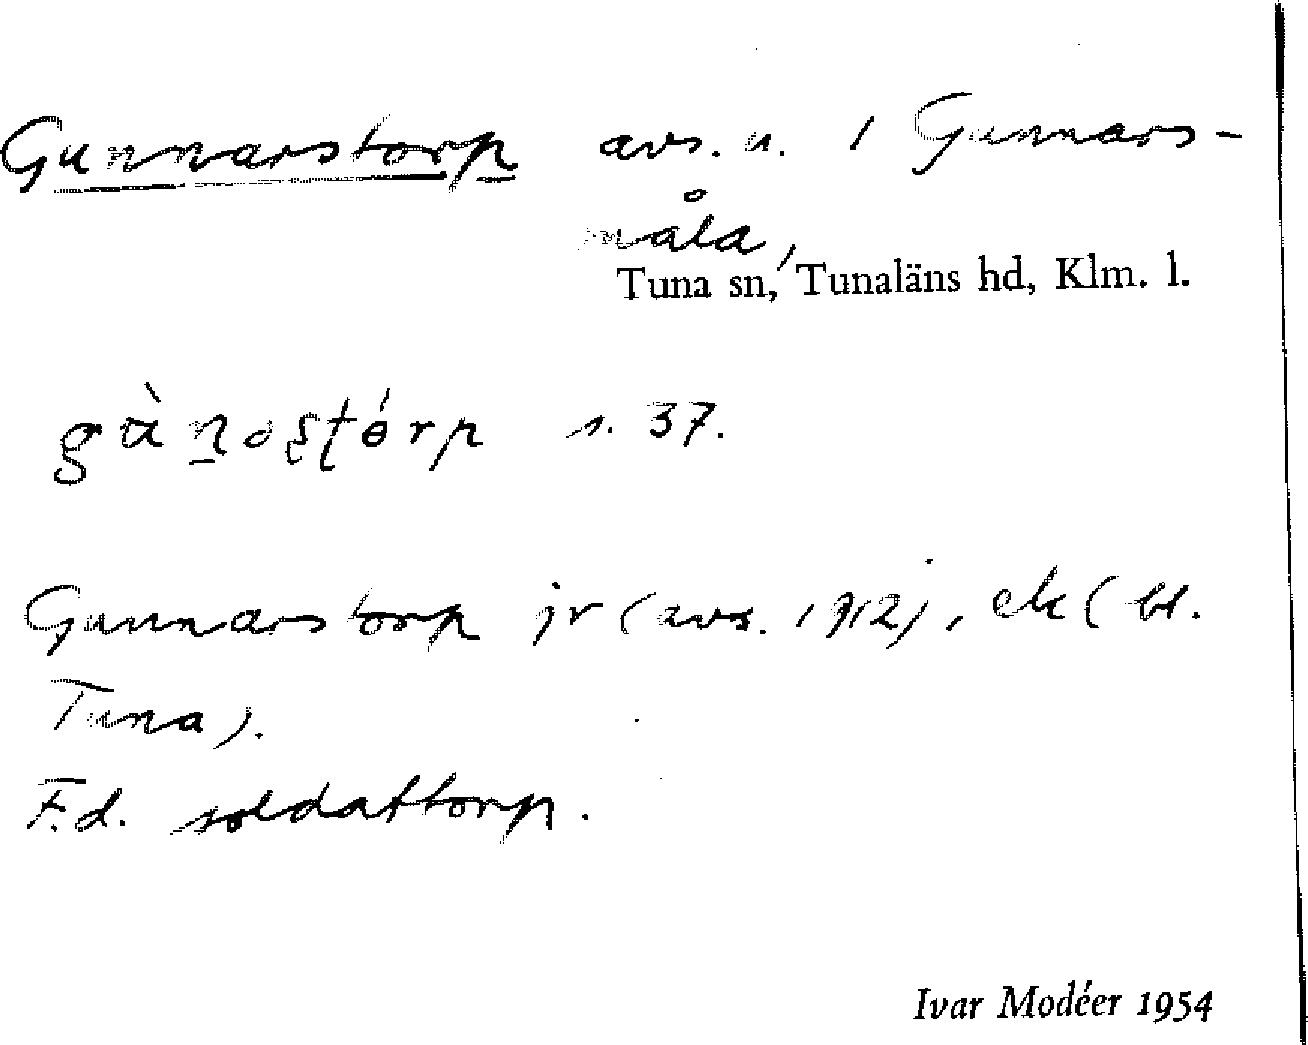 Gunnarstorp avs. u. 1 Gunnars-
måla,
Tuna sn, Tunaläns hd, Klm. l.
s. 37.
Gunnarstorp jr (avs. 1912), ek (bl.
Tuna).
F.d. soldattorp.
Ivar Modéer 1954